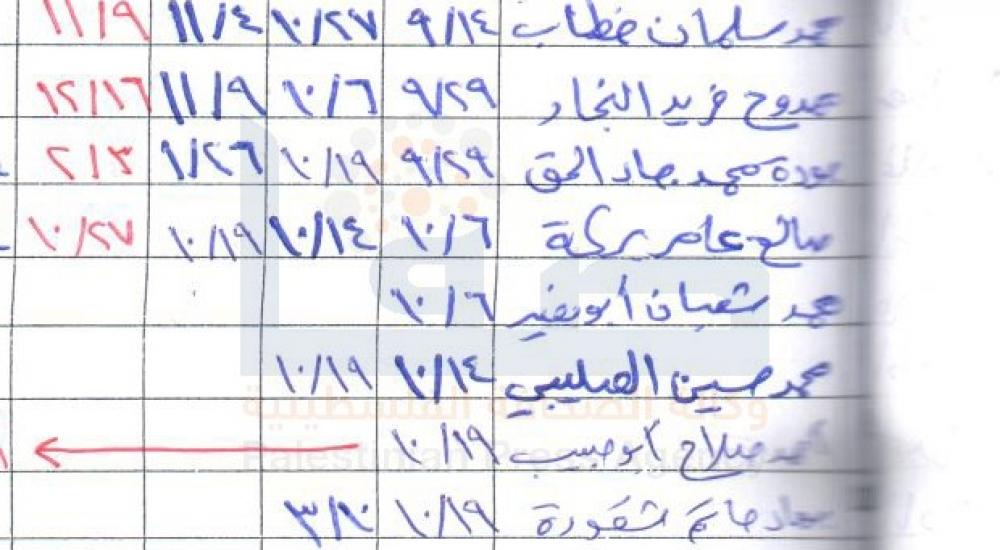 محمد سلمان خطاب ٩/١٤ ١٠/٢٧ ١١/٤ ١١/٩
ممدوح فريد النجار ٩/٢٩ ١٠/٦ ١١/٩ ١٢/١٦
عودة محمد جاد الحق ٩/٢٩ ١٠/١٩ ١/٢٦ ٢/٣
صالح عامر بركة ١٠/٦ ١٠/١٤ ١٠/١٩ ١٠/٢٧
محمد شعبان أبو ١٠/٦
محمد حسين الصليبي ١٠/١٤ ١٠/١٩
صلاح أبو حبيب ١٠/١٩
حاتم شقورة ١٠/١٩
صفا
وكالة الصحافة الفلسطينية
Palestinian Press Agency